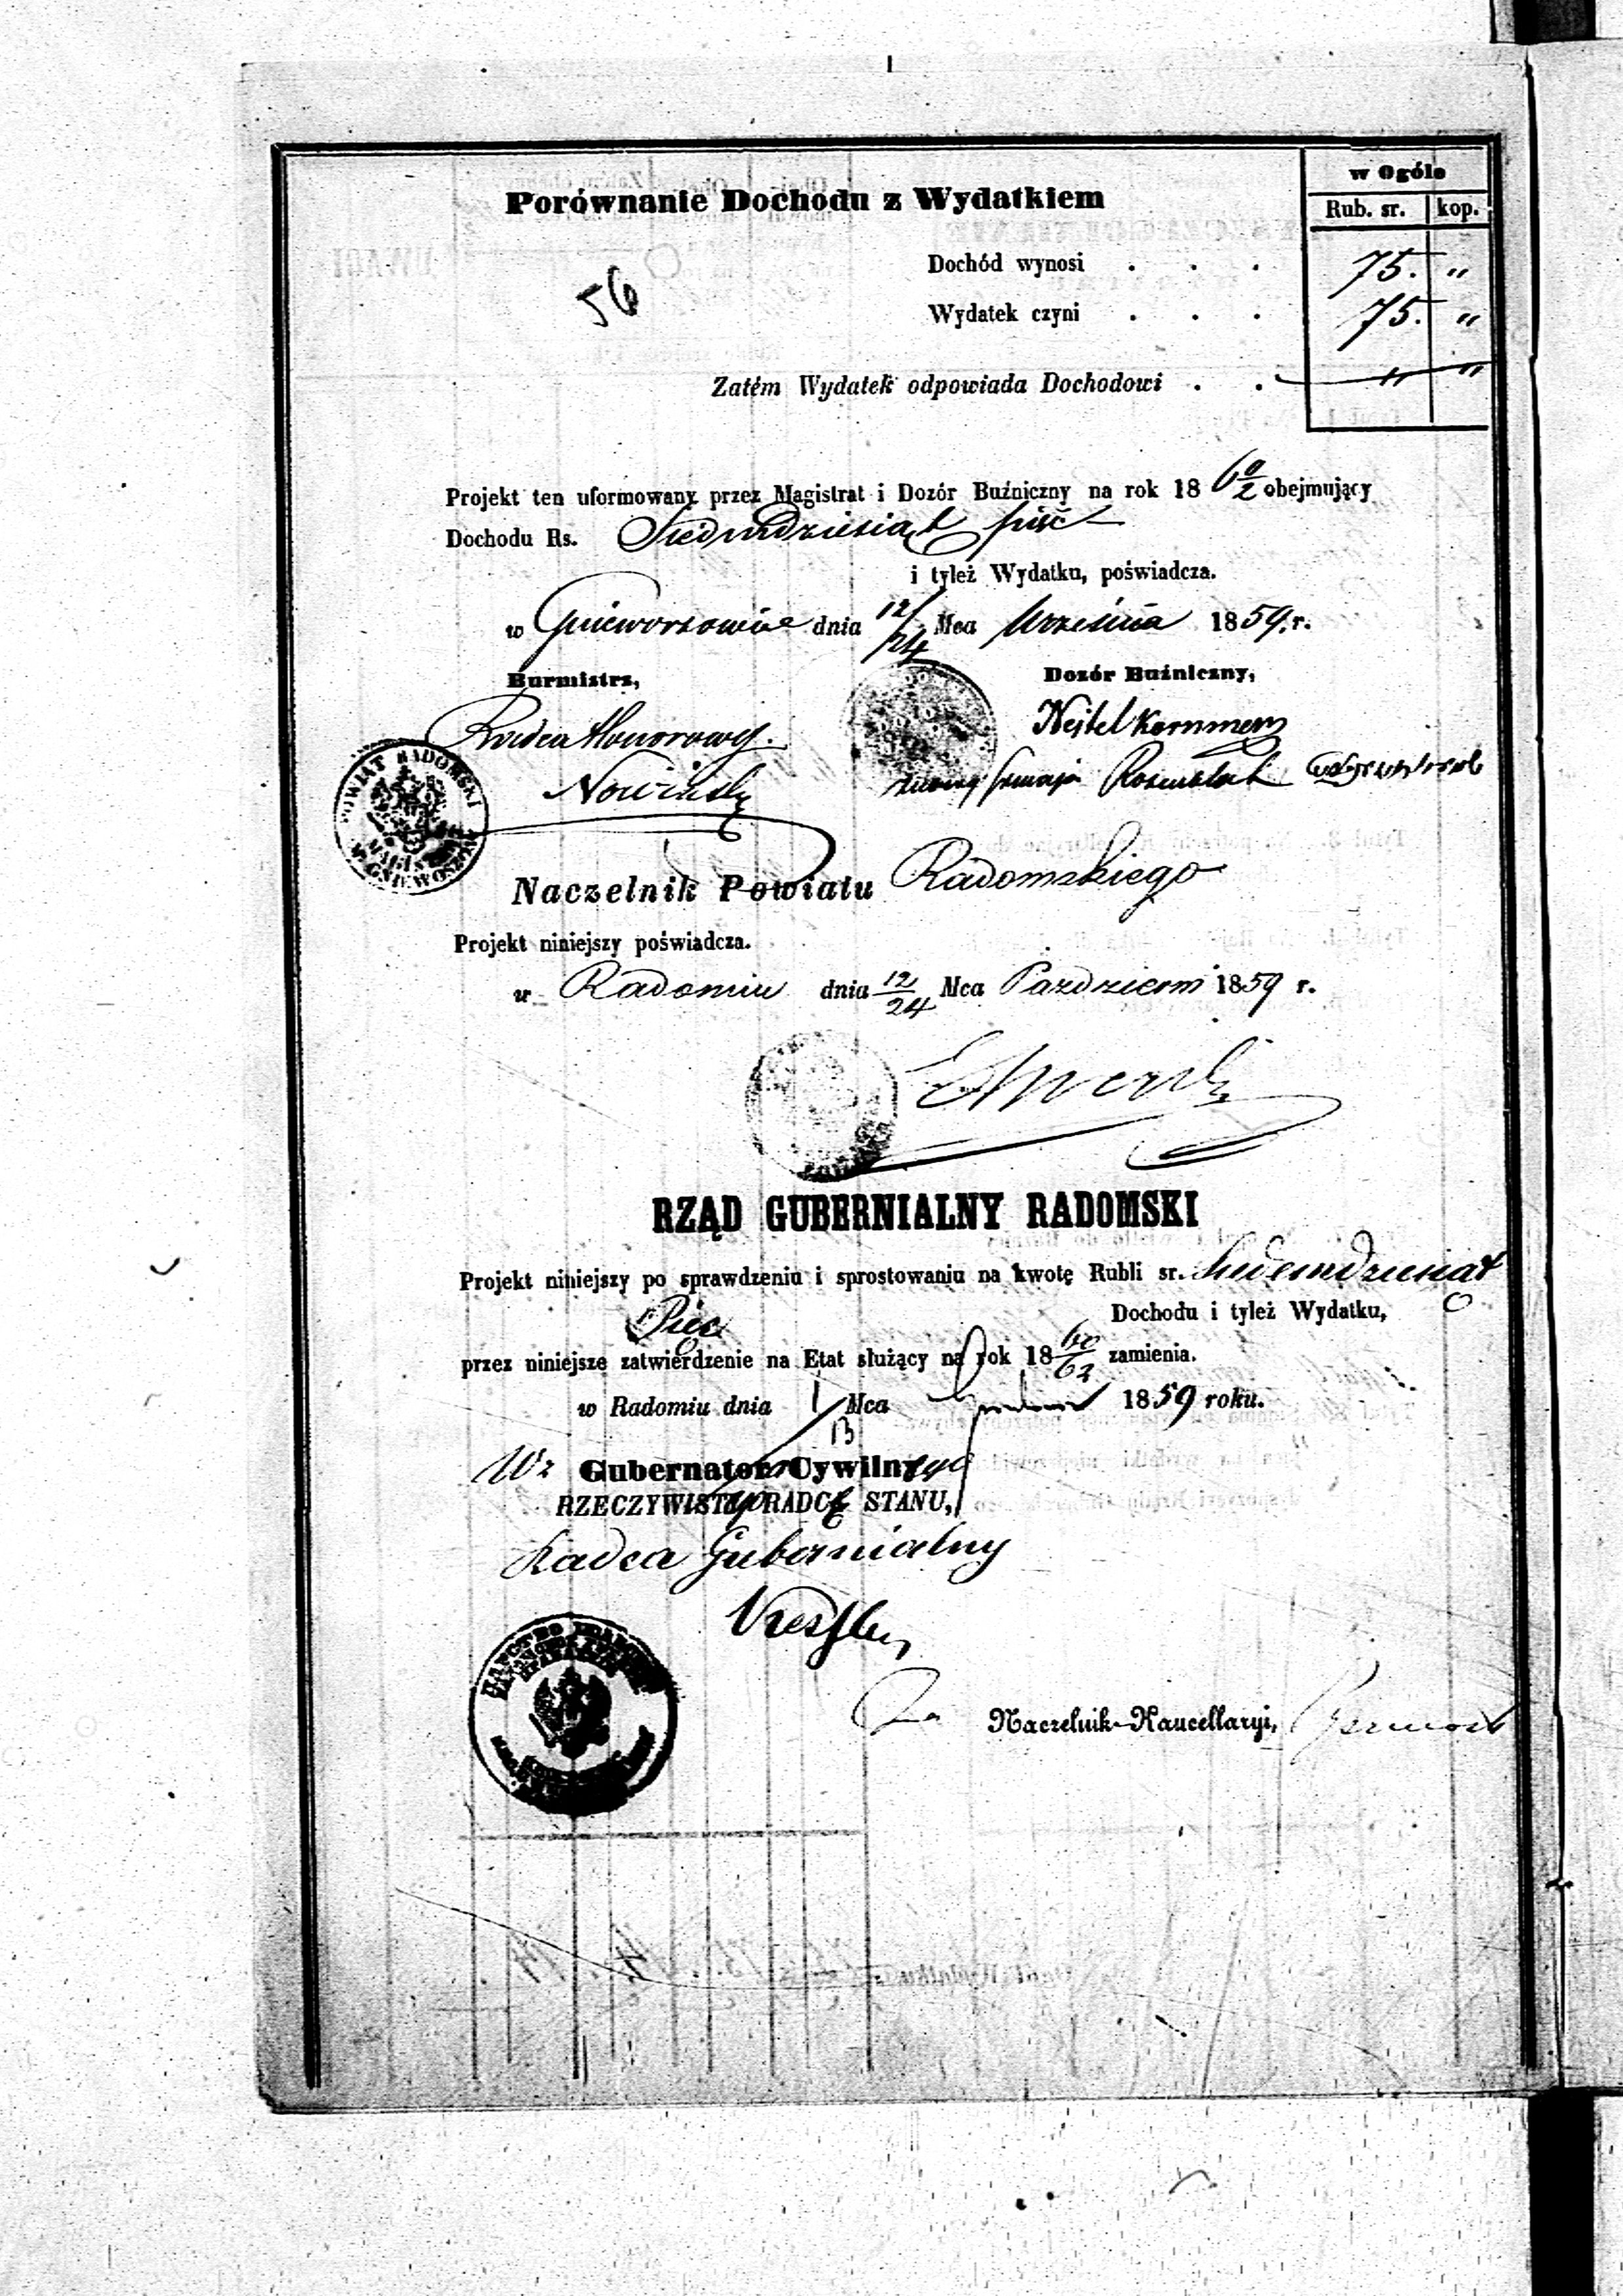 w Ogóle
Porównanie Dochodu z Wydatkiem
Rub. sr. kop.
Dochód wynosi . . . 75. "
56
Wydatek czyni . . . 75. "
Zatém Wydatek odpowiada Dochodowi . . " "
Projekt ten uformowany przez Magistrat i Dozór Buźniczny na rok 18 60/2 obejmujący
Dochodu Rs. Siedmdziesiąt pięć
i tyleż Wydatku, poświadcza.
w Gniewoszowie dnia 12/24 Mca Września 1859 r.
Burmistrz, Dozór Buźniczny,
Radca Honorowy.
Nowiński
POWIAT RADOMSKI
W GNIEWOSZOW
Naczelnik Powiatu Radomskiego
Projekt niniejszy poświadcza.
w Radomiu dnia 12/24 Mca Październ 1859 r.
RZĄD GUBERNIALNY RADOMSKI
Projekt niniejszy po sprawdzeniu i sprostowaniu na kwotę Rubli sr. Siedemdziesiąt
Pięć Dochodu i tyleż Wydatku,
przez niniejsze zatwierdzenie na Etat służący na rok 18 60/62 zamienia.
w Radomiu dnia 1/13 Mca Grudnia 1859 roku.
Wz Gubernator Cywilny
RZECZYWISTY RADCA STANU,
Radca Gubernialny
Za Naczelnik Kancellaryi,